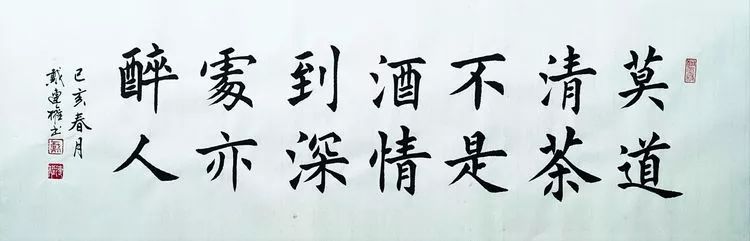 莫道
清茶
不是
酒情
到深
處亦
醉人
己亥春月
戴书